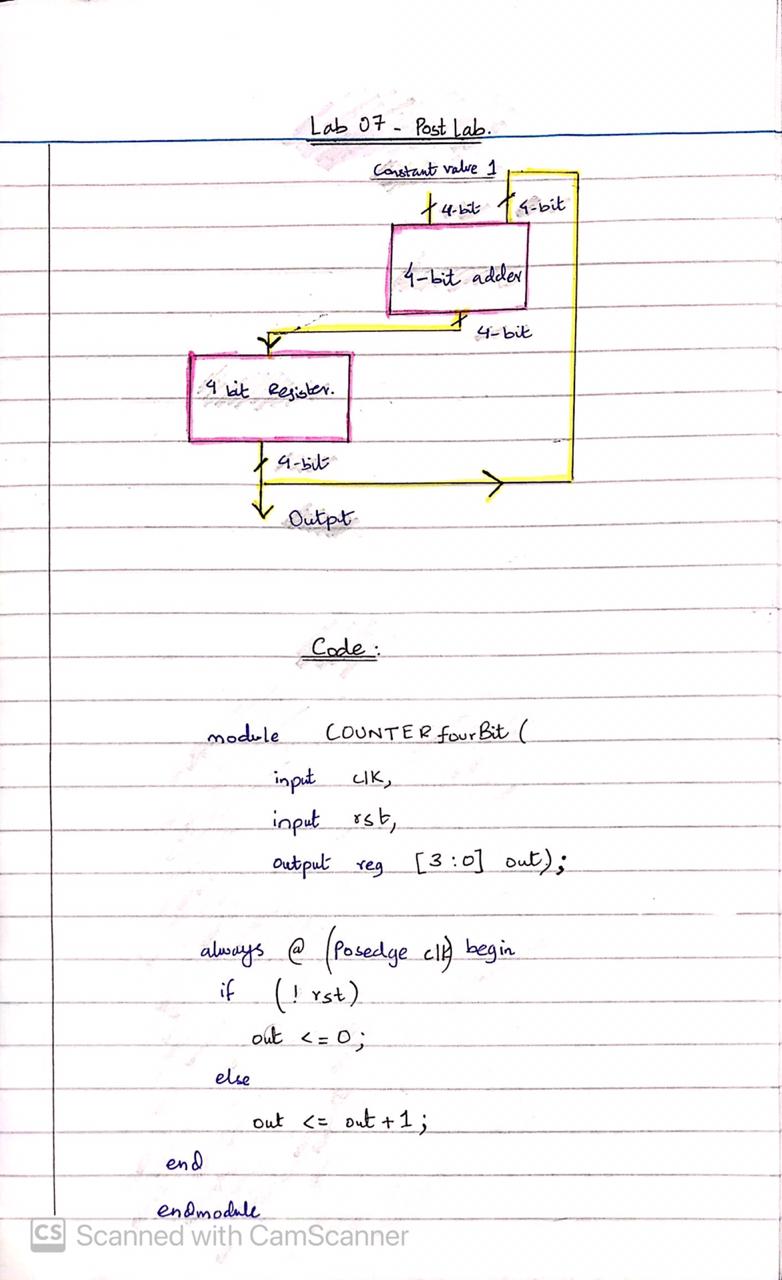 Lab 07 - Post Lab.
Constant value 1
4-bit 4-bit
4-bit adder
4-bit
4 bit Register.
4-bit
Outpt
Code:
module COUNTERfourBit (
input clk,
input rst,
output reg [3:0] out);
always @ (Posedge clk) begin
if (! rst)
out <= 0;
else
out <= out + 1;
end
endmodule
CS Scanned with CamScanner